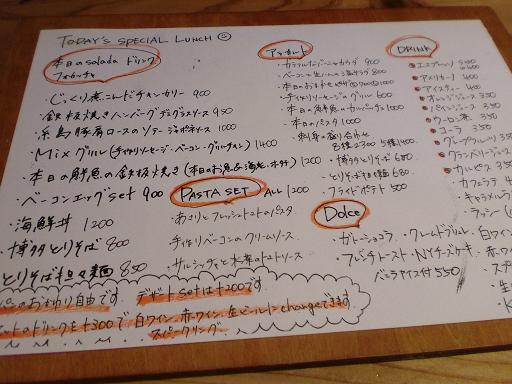 TODAY'S SPECIAL LUNCH
本日のsalada ドリンク
フォカッチャ
じっくり煮こんだチキンカリー 900
鉄板焼きハンバーグデミグラスソース 950
糸島豚肩ロースのソテー ジャポネソース 1000
Mixグリル(手作りソーセージ・ベーコン・グリルチキン) 1400
本日の鮮魚の鉄板焼き(本日のお魚・海老・ホタテ) 1200
ベーコンエッグset 900
海鮮丼 1200
博多とりそば 800
とりそば担々麺 850
PASTA SET ALL 1200
あさりとフレッシュトマトのパスタ
手作りベーコンのクリームソース
サルシッチャと木の子のトマトソース
のおかわり自由です デザートsetは+200です
ドリンクを+300で白ワイン、赤ワイン、生ビールにchangeできます
スパークリング
アラカルト
900
800
手作りソーセージのグリル 600
本日の鮮魚のカルパッチョ 1000
本日のパスタ 1000
刺身の盛り合わせ
8種2300 5種1400
博多とりそば 680
とりそば担々麺 680
フライドポテト 500
Dolce
ガトーショコラ・クレームブリュレ
フレンチトースト・NYチーズケーキ
バニラアイス付 550
DRINK
エスプレッソ
アメリカーノ 400
アイスティー 400
オレンジジュース 350
パインジュース 350
ウーロン茶 350
コーラ 350
グレープフルーツ 350
クランベリージュース
カルピス 350
カフェラテ
キャラメル
ラッシー
白ワイン
赤ワイン